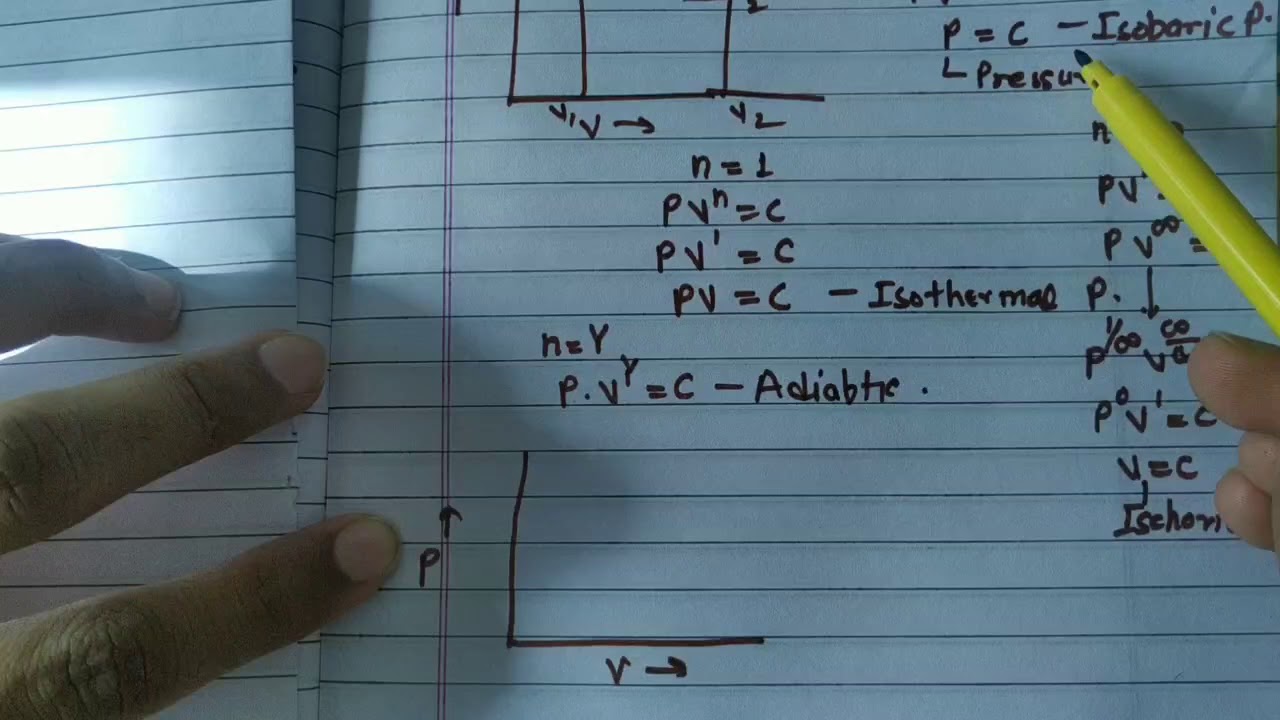 P = C - Isobaric P.
└ Pressu
V₁ V → V₂
n = 1
PVⁿ = C
PV¹ = C
PV = C - Isothermal P.
n = γ
P.V^γ = C - Adiabtic.
n
PV
P V^∞ =
↓
P^1/∞ V^∞/∞
P⁰V¹ = C
V = C
Ischori
P ↑
V →